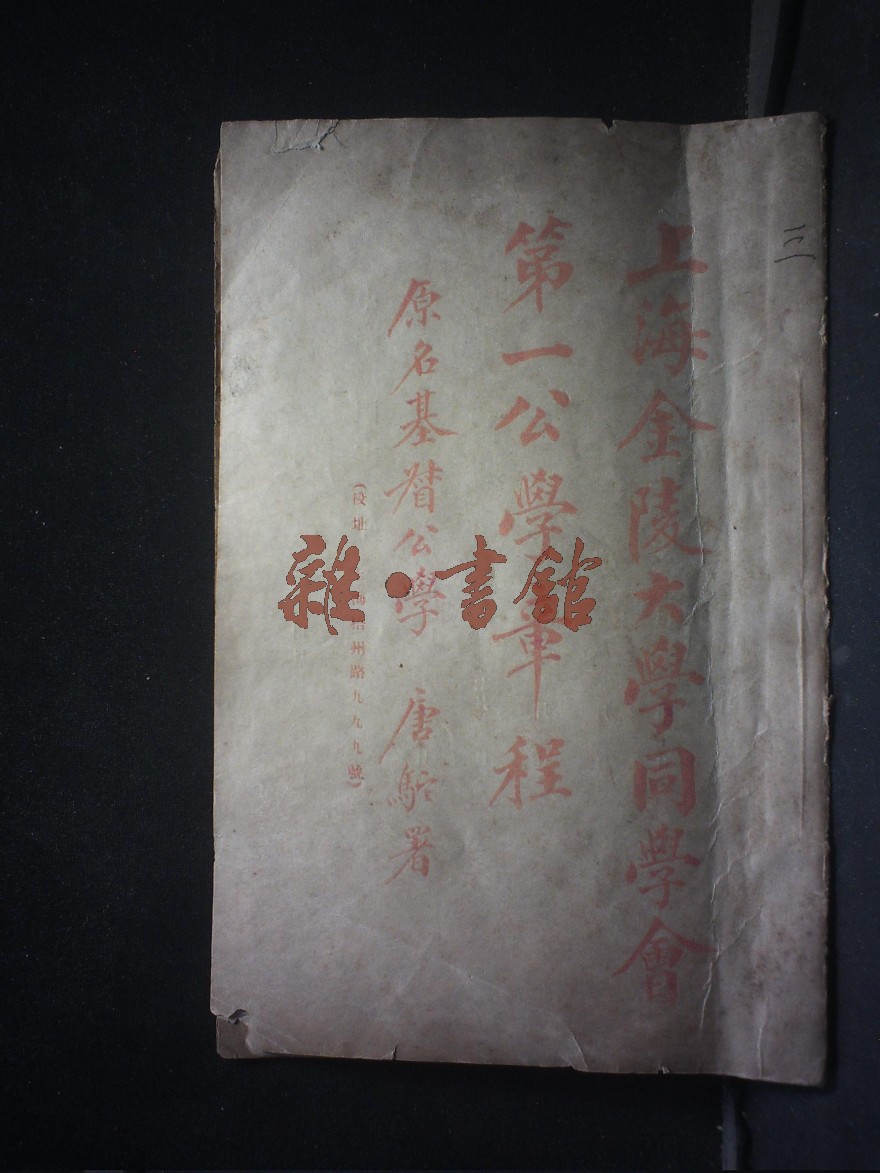 上海金陵大學同學會
第一公學章程
原名基督公學 唐駝署
州路九九九號)
雜·書館
三